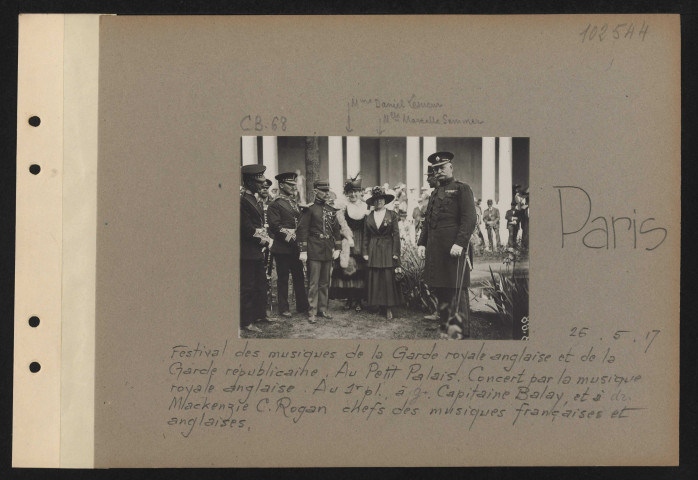 102544
Mme Daniel Lesueur
C.B. 68
Mlle Marcelle Semmer
Paris
25.5.17
Festival des musiques de la Garde royale anglaise et de la
Garde républicaine. Au Petit Palais. Concert par la musique
royale anglaise. Au 1er pl., à g. Capitaine Balay, et à dr.
Mackenzie C. Rogan chefs des musiques françaises et
anglaises.